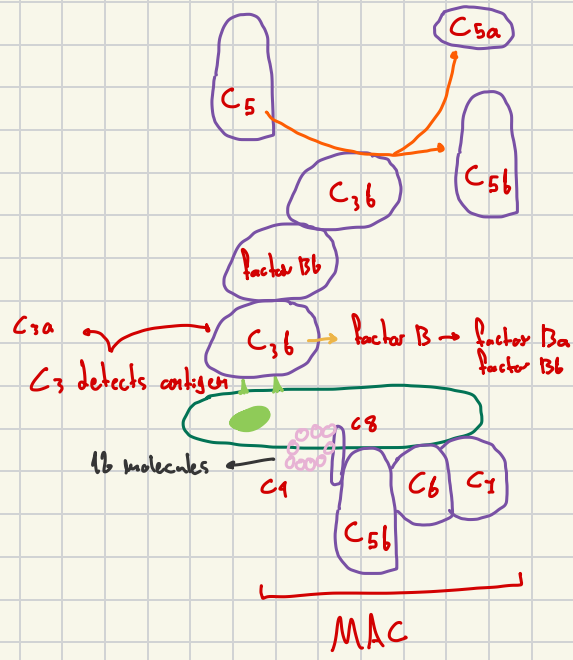 C5a
C5
C5b
C3b
factor Bb
C3a
C3b
factor B
factor Ba
factor Bb
C3 detects antigen
C8
16 molecules
C9
C6
C7
C5b
MAC